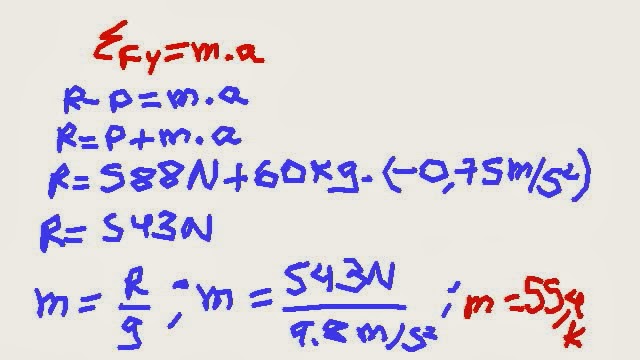 ΣFy=m.a
R-P=m.a
R=P+m.a
R=588N+60Kg.(-0,75m/s²)
R=543N
m=R/g; m=543N/9.8m/s²; m=55,4 k